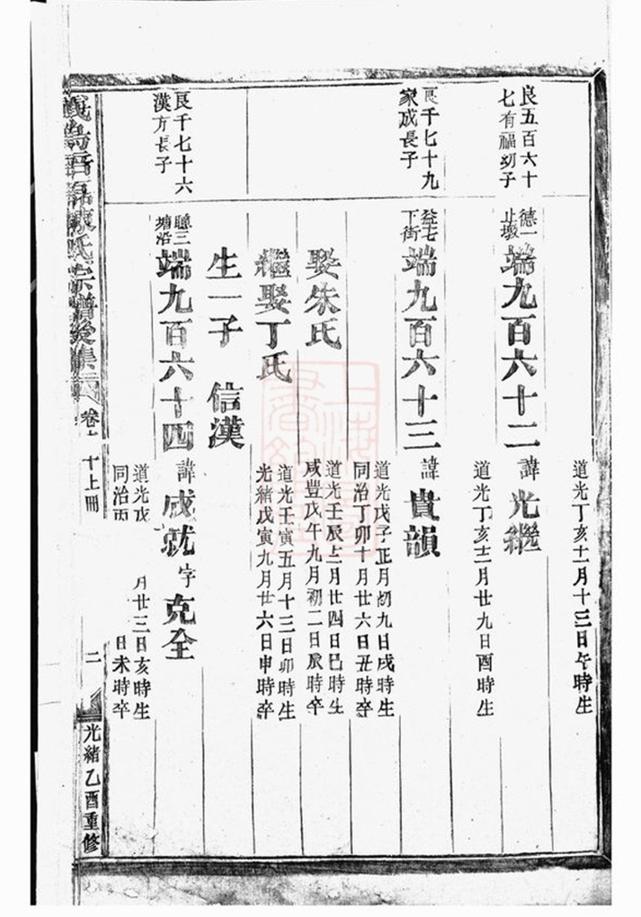 道光丁亥十一月十三日午時生
良五百六十
七有福幼子
德一
端九百六十二 諱光繼
道光丁亥十二月廿九日酉時生
良千七十九
家成長子
益七
下街
端九百六十三 諱貴韻
道光戊子正月初九日戌時生
同治丁卯十月廿六日丑時卒
娶朱氏
道光壬辰
月廿四日巳時生
咸豐戊午九月初二日辰時卒
繼娶丁氏
道光壬寅五月十三日卯時生
光緒戊寅九月廿六日申時卒
生一子 信漢
良千七十六
漢方長子
聽三
塘沿
端九百六十四 諱成就 字克全
道光戊
月廿三日亥時生
同治丙
日未時卒
陳氏宗譜後集
卷
十上冊
二
光緒乙酉重修